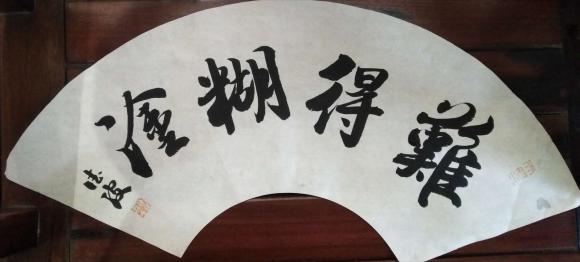 難得糊塗